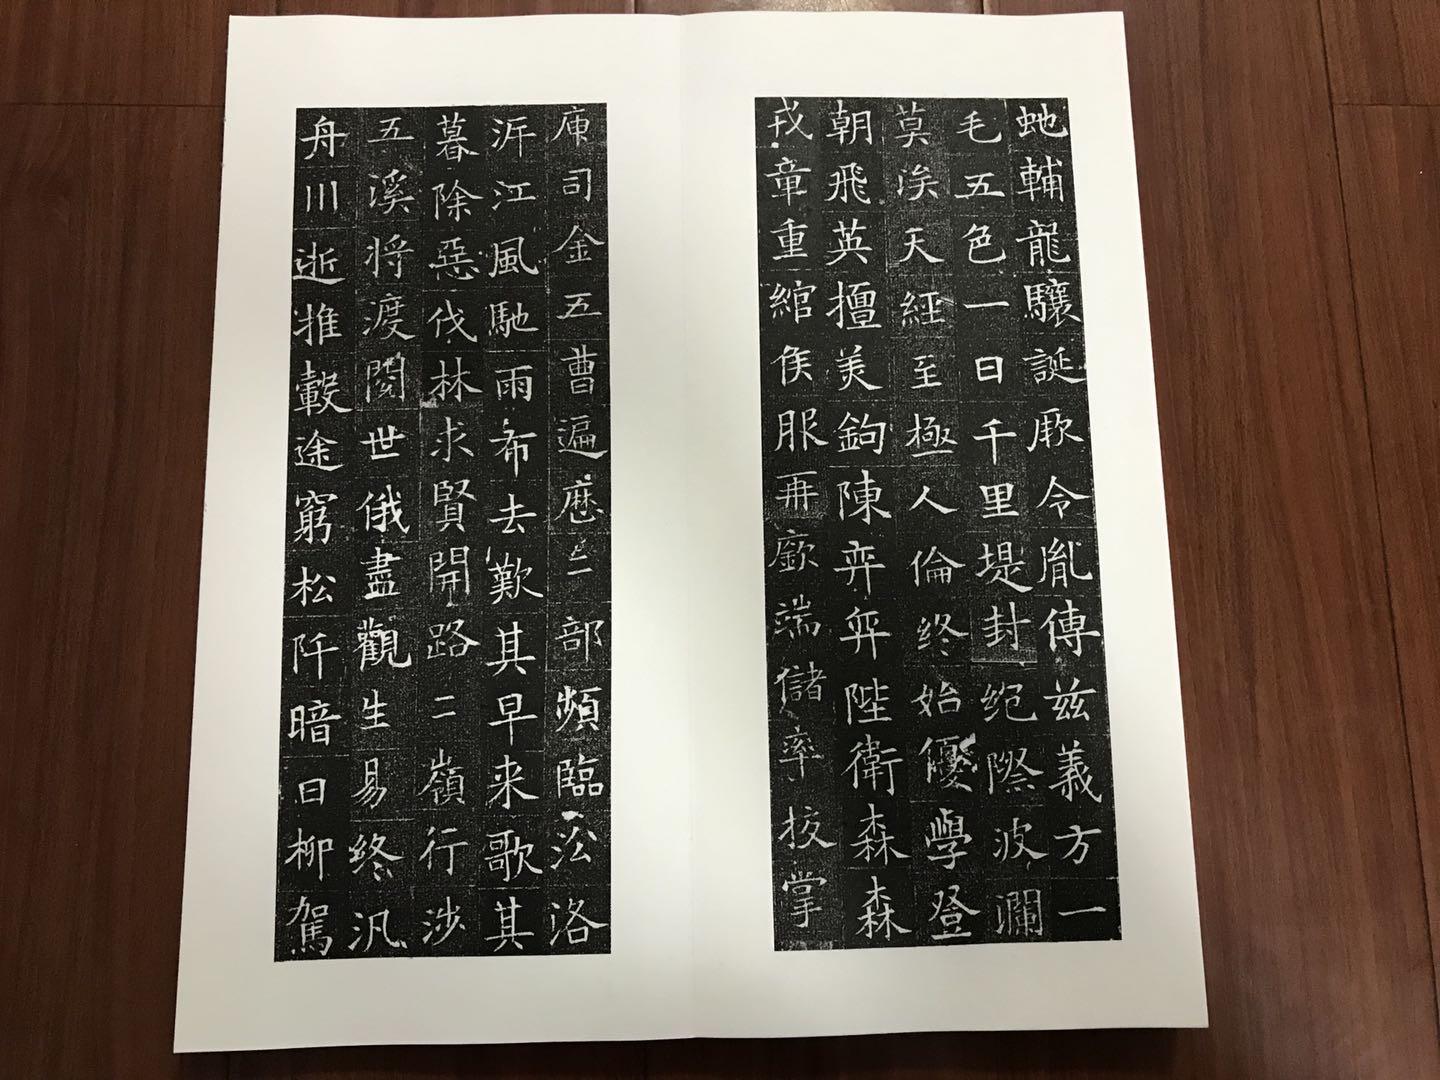 虵輔龍驤誕厥令胤傳茲義方一
毛五色一日千里堤封絕際波瀾
莫涘天經至極人倫終始優學登
朝飛英擅美鉤陳弈弈陛衛森森
戎章重綰侯服再廞端儲率校掌
庾司金五曹遍歷三部頻臨沿洛
泝江風馳雨布去歎其早来歌其
暮除惡伐林求賢開路二嶺行涉
五溪將渡閱世俄盡觀生易終汎
舟川逝推轂途窮松阡暗日柳駕